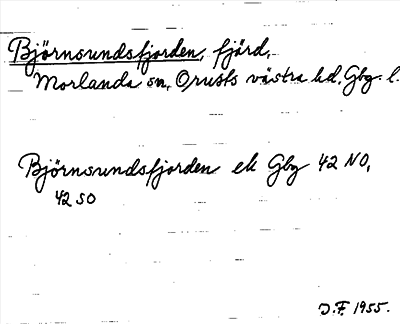 Björnsundsfjorden, fjärd,
Morlanda sn, Orusts västra hd, Gbg. l.
Björnsundsfjorden ek Gbg 42 NO,
42 SO
J.F. 1955.